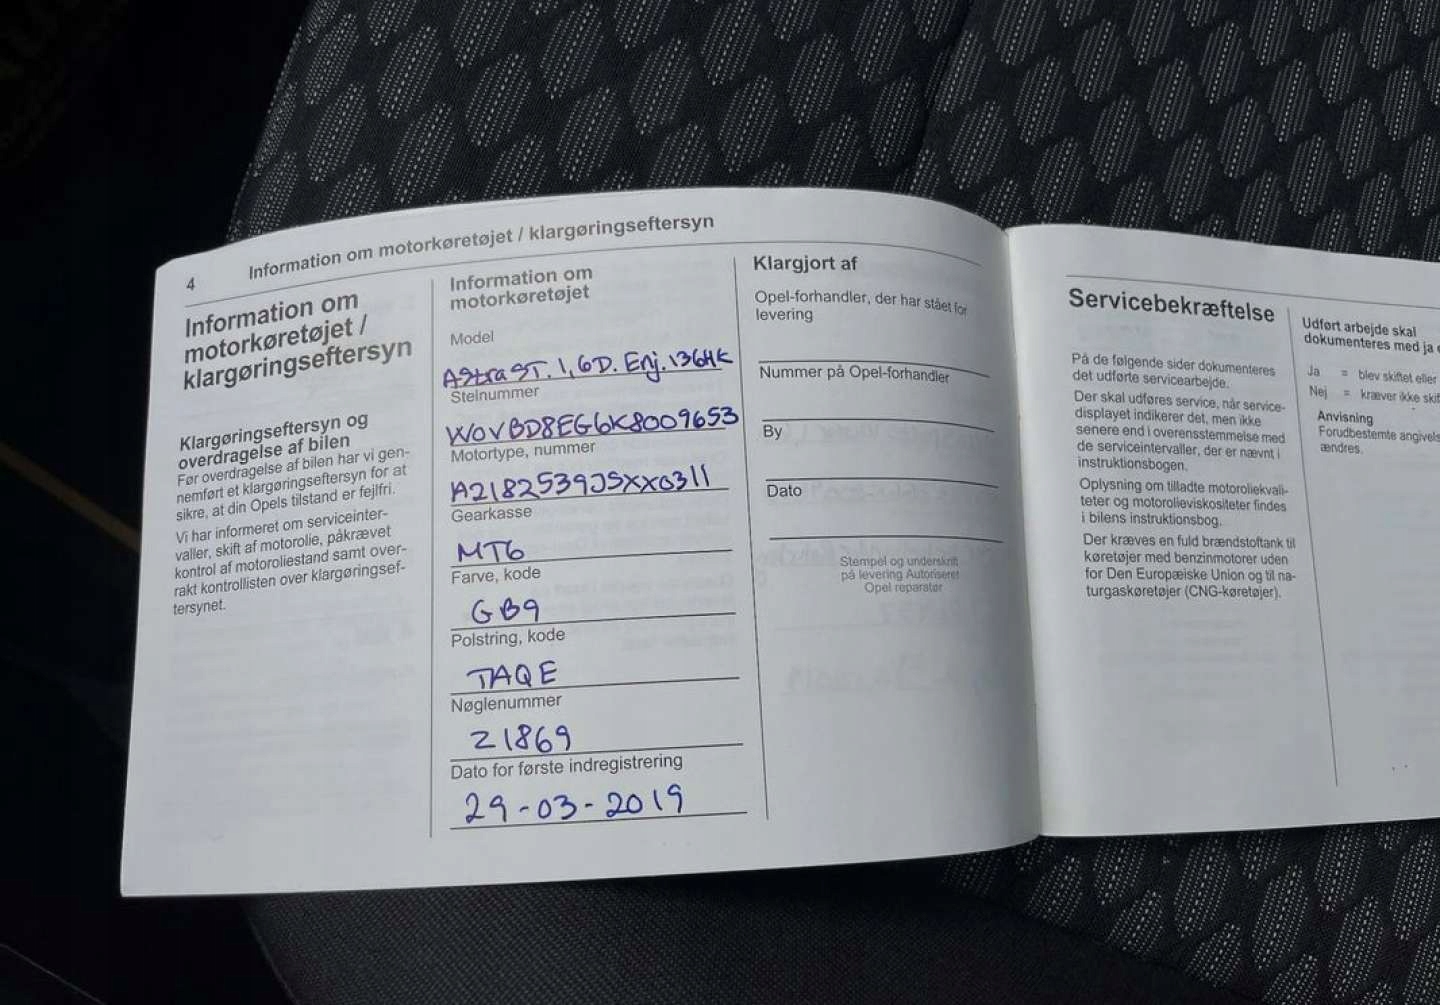 4
Information om motorkøretøjet / klargøringseftersyn
Information om
motorkøretøjet /
klargøringseftersyn
Klargøringseftersyn og
overdragelse af bilen
Før overdragelse af bilen har vi gen-
nemført et klargøringseftersyn for at
sikre, at din Opels tilstand er fejlfri.
Vi har informeret om serviceinter-
valler, skift af motorolie, påkrævet
kontrol af motoroliestand samt over-
rakt kontrollisten over klargøringsef-
tersynet.
Information om
motorkøretøjet
Model
Astra ST. 1,6D. Enj. 136HK
Stelnummer
W0VBD8EG6K8009653
Motortype, nummer
A2182539JSXX0311
Gearkasse
MT6
Farve, kode
GB9
Polstring, kode
TAQE
Nøglenummer
Z1869
Dato for første indregistrering
29-03-2019
Klargjort af
Opel-forhandler, der har stået for
levering
Nummer på Opel-forhandler
By
Dato
Stempel og underskrift
på levering Autoriseret
Opel reparatør
Servicebekræftelse
På de følgende sider dokumenteres
det udførte servicearbejde.
Der skal udføres service, når service-
displayet indikerer det, men ikke
senere end i overensstemmelse med
de serviceintervaller, der er nævnt i
instruktionsbogen.
Oplysning om tilladte motoroliekvali-
teter og motorolieviskositeter findes
i bilens instruktionsbog.
Der kræves en fuld brændstoftank til
køretøjer med benzinmotorer uden
for Den Europæiske Union og til na-
turgaskøretøjer (CNG-køretøjer).
Udført arbejde skal
dokumenteres med ja
Ja = blev skiftet eller
Nej = kræver ikke
Anvisning
Forudbestemte
ændres.